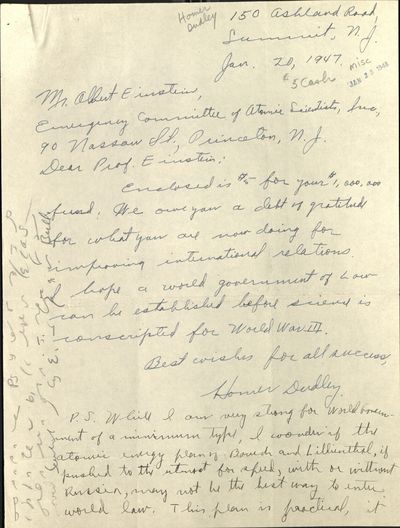 Homer
Dudley
150 Ashland Road,
Summit, N. J.
Jan. 20, 1947.
$5 Cash
misc
JAN 23
Mr. Albert Einstein,
Emergency Committee of Atomic Scientists, Inc,
90 Nassau St., Princeton, N. J.
Dear Prof. Einstein:
Enclosed is $5 for your $1,000,000
fund. We owe you a debt of gratitude
for what you are now doing for
improving international relations.
I hope a world government of Law
can be established before science is
conscripted for World War III.
Best wishes for all success,
Homer Dudley.
P.S. While I am very strong for World Govern-
ment of a minimum type, I wonder if the
atomic energy plan of Baruch and Lillienthal, if
pushed to the utmost for speed, with or without
Russia, may not be the best way to enter
world law. This plan is practical, it